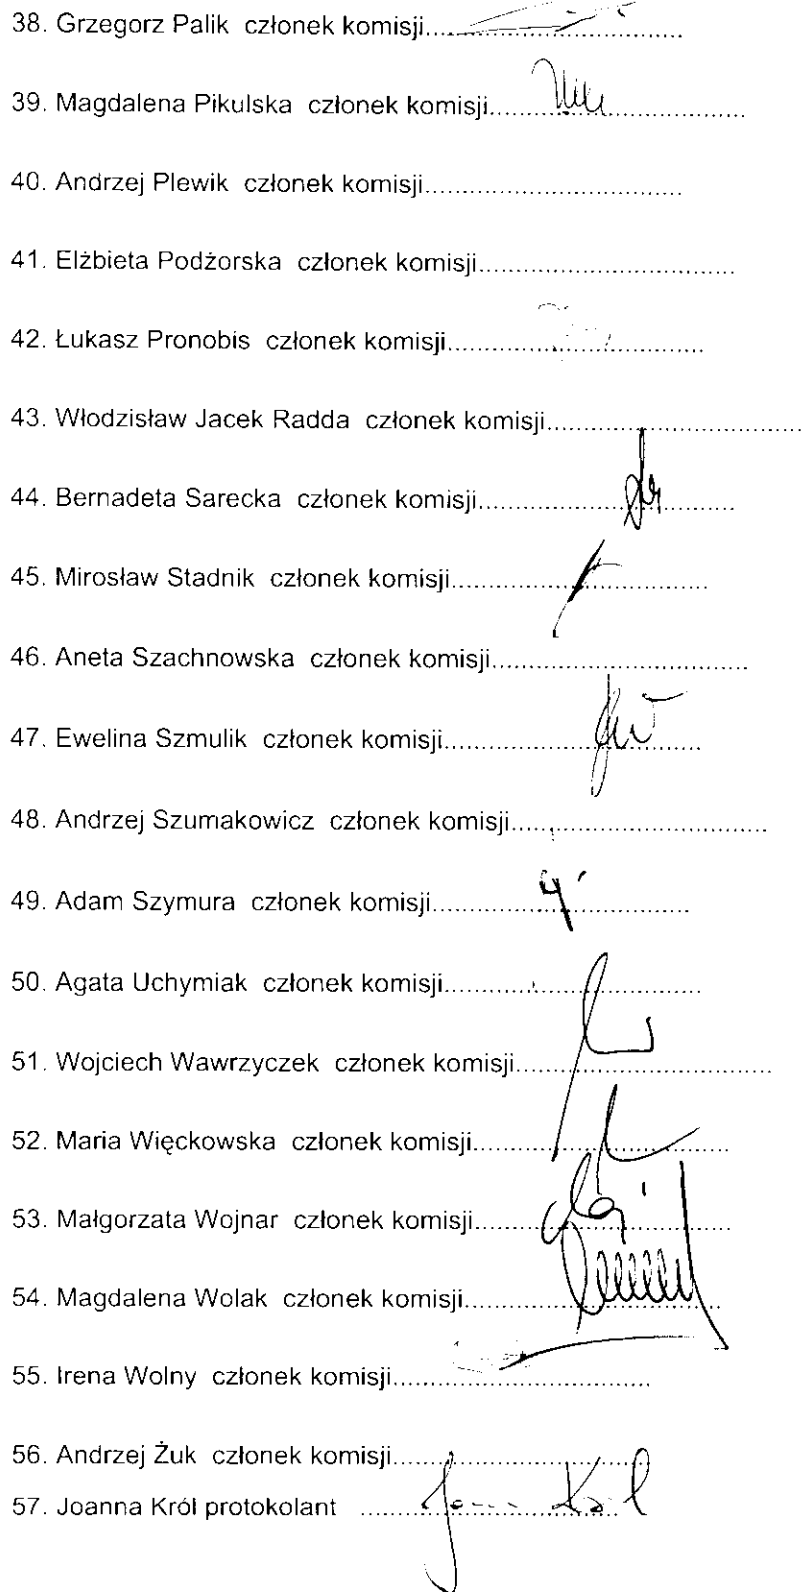 38. Grzegorz Palik  członek komisji....................................
39. Magdalena Pikulska  członek komisji....................................
40. Andrzej Plewik  członek komisji....................................
41. Elżbieta Podżorska  członek komisji....................................
42. Łukasz Pronobis  członek komisji....................................
43. Włodzisław Jacek Radda  członek komisji....................................
44. Bernadeta Sarecka  członek komisji....................................
45. Mirosław Stadnik  członek komisji....................................
46. Aneta Szachnowska  członek komisji....................................
47. Ewelina Szmulik  członek komisji....................................
48. Andrzej Szumakowicz  członek komisji....................................
49. Adam Szymura  członek komisji....................................
50. Agata Uchymiak  członek komisji....................................
51. Wojciech Wawrzyczek  członek komisji....................................
52. Maria Więckowska  członek komisji....................................
53. Małgorzata Wojnar  członek komisji....................................
54. Magdalena Wolak  członek komisji....................................
55. Irena Wolny  członek komisji....................................
56. Andrzej Żuk  członek komisji....................................
57. Joanna Król protokolant  ....................................